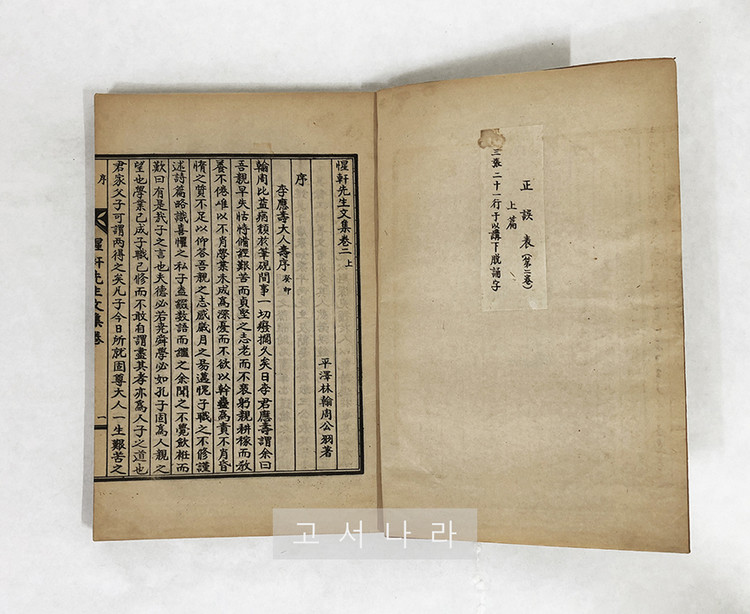 正誤表(第二卷)
上篇
三張二十一行于以講下脫誦字
惺軒先生文集卷二上
平澤林翰周公羽著
序
李應壽大人壽序 癸卯
翰周比益病頹於筆硯間事一切癈擱久矣日李君應壽謂余曰
吾親早失怙恃備經艱苦而貞堅之志老而不衰躬親耕稼而敎
養不倦雖以不肖學業未成爲深憂而不欲以幹蠱爲責不肖昏
惰之質不足以仰答吾親之志感歲月之易邁愧子職之不修謹
述詩篇略識喜懼之私子盍綴數語而之余聞之不覺斂衽而
歎曰有是哉子之言也夫德必若堯舜學必如孔子固爲人親之
望也學業已成子職已修而不敢自謂盡其孝亦爲人子之道也
君家父子可謂兩得之矣凡子今日所就固尊大人一生艱苦之
惺軒先生文集卷
序
一
고서나라